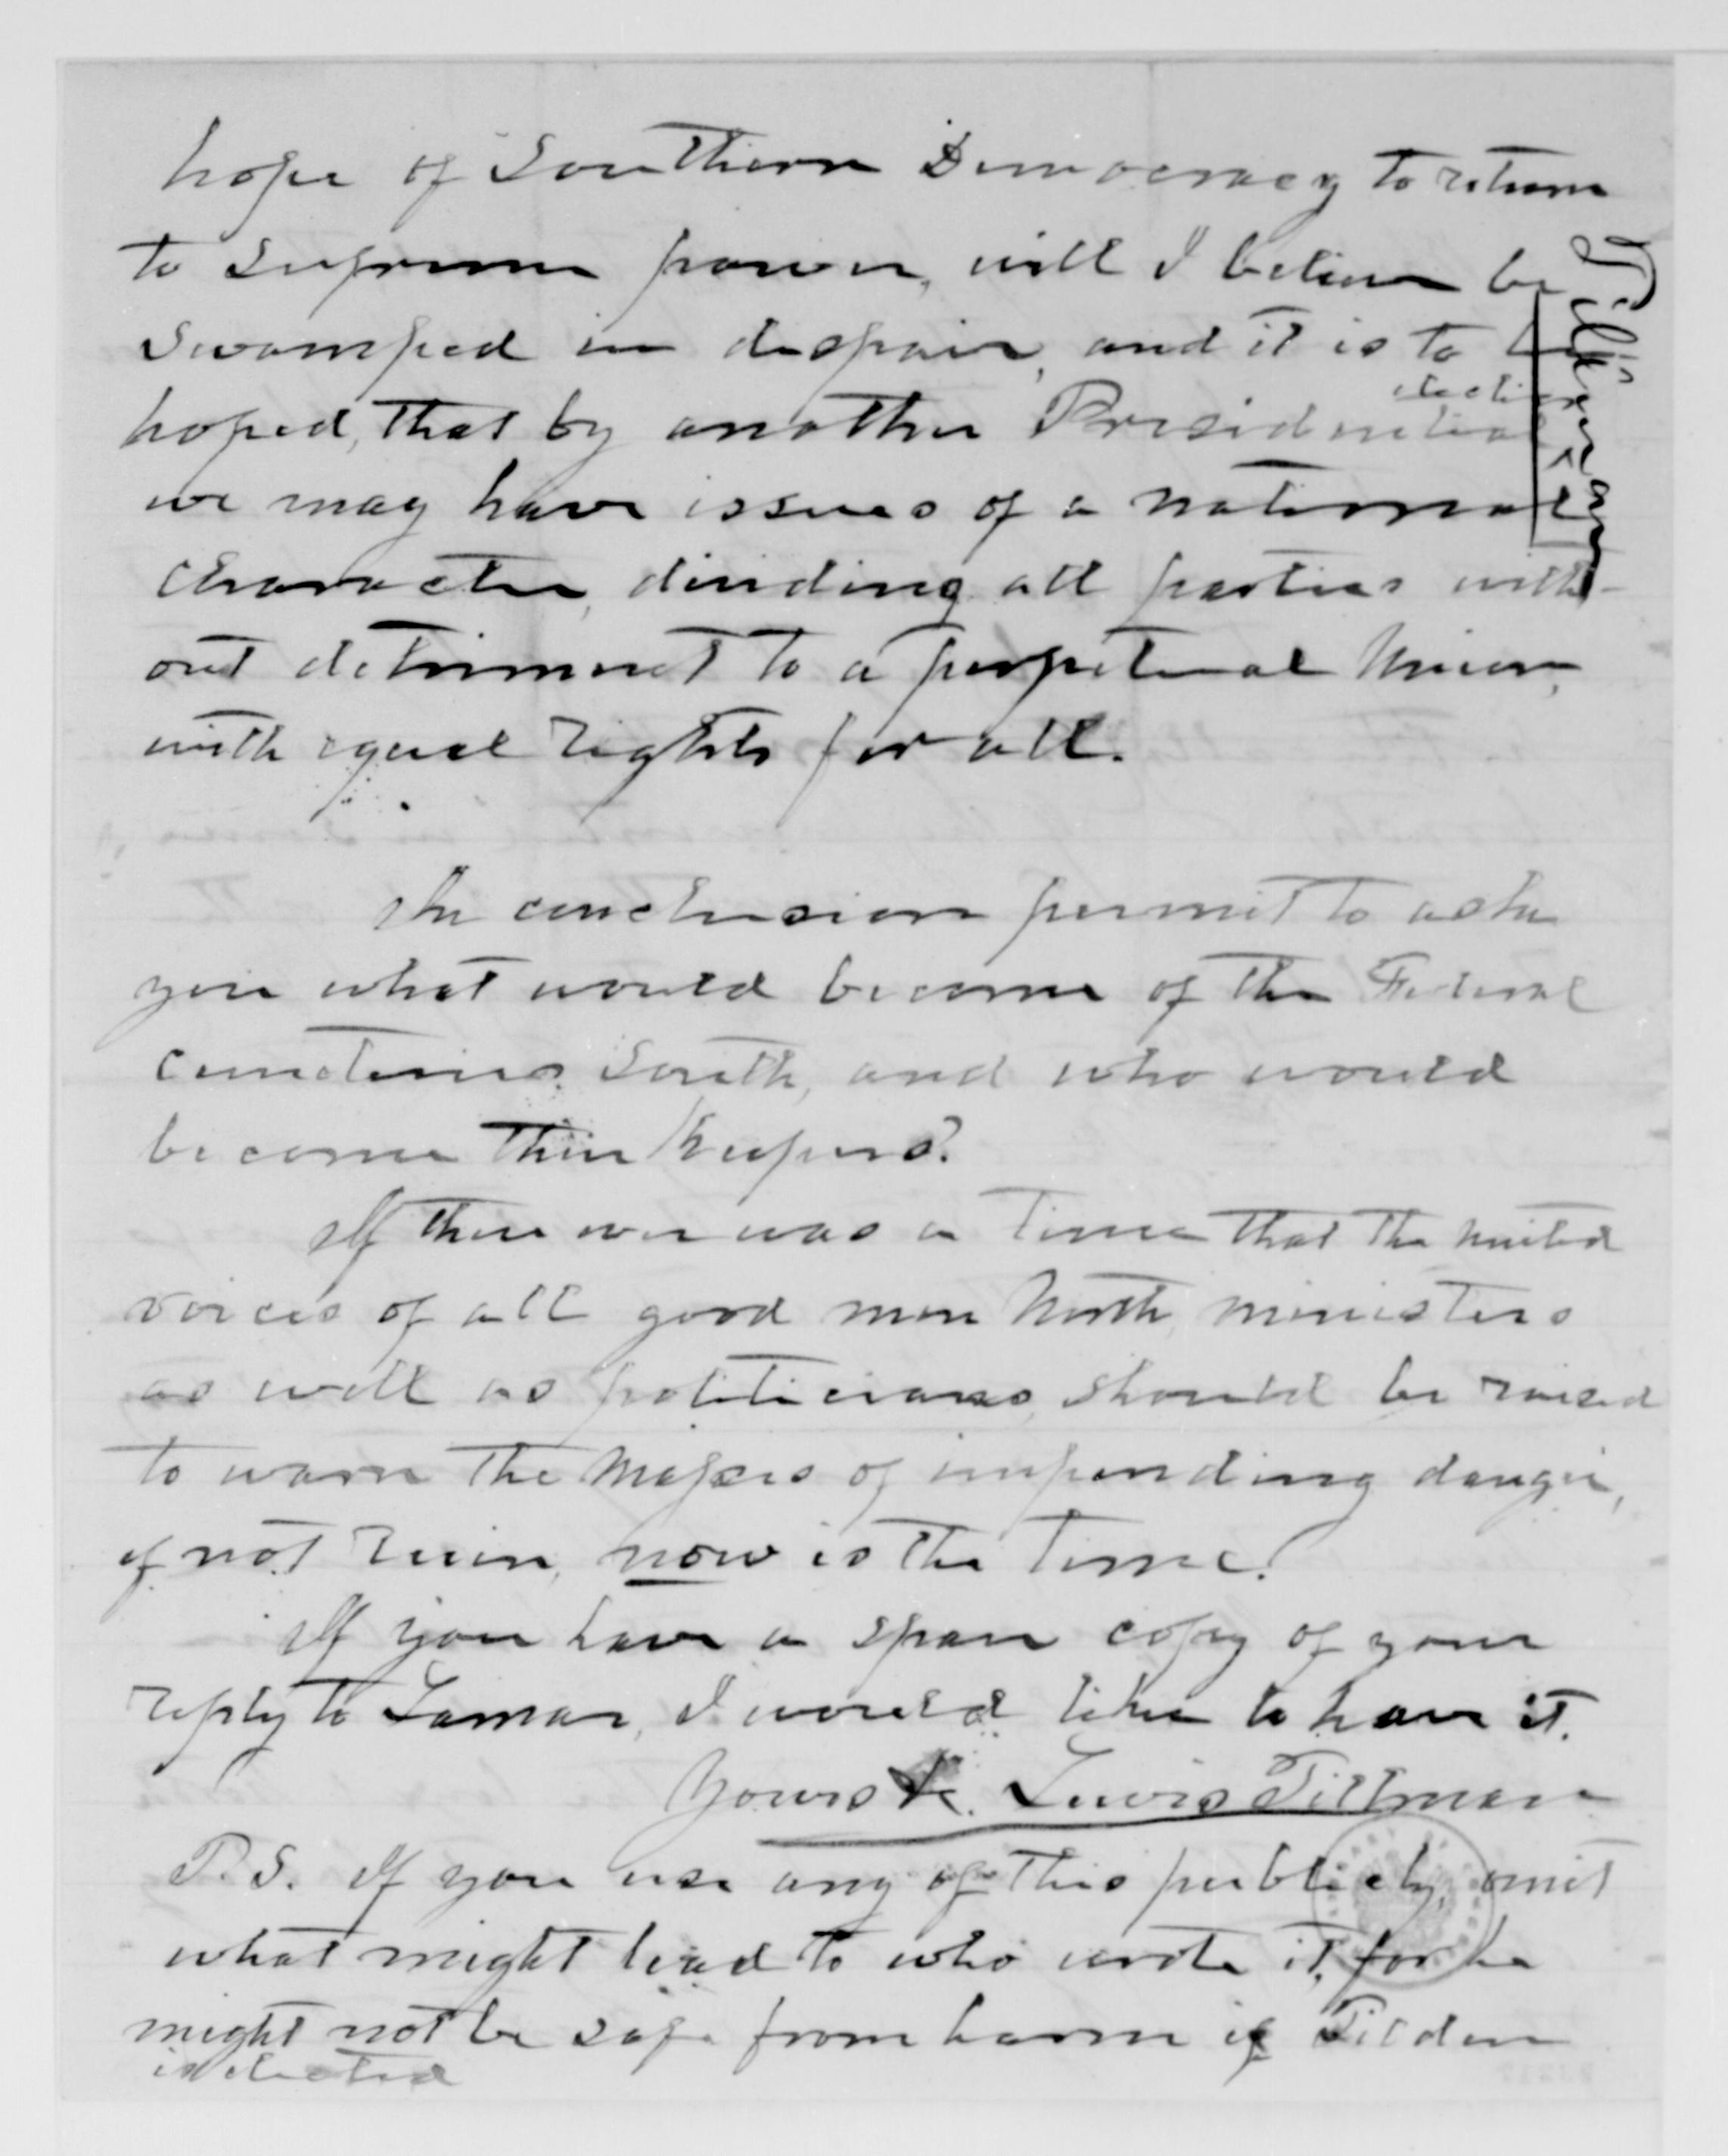 hope of Southern Democracy to return
to supreme power, will I believe be
swamped in despair, and it is to be
hoped, that by another Presidential election
we may have issues of a national
character, dividing all parties with-
out detriment to a perpetual Union,
with equal rights for all.
In conclusion permit to ask
you what would become of the Federal
cemeteries South, and who would
become their Keepers?
If there ever was a time that the united
voices of all good men North, ministers
as well as politicians, should be raised
to warn the masses of impending danger,
if not ruin, now is the time!
If you have a spare copy of your
reply to Lamar, I would like to have it.
Yours &c. Lewis Tillman
P.S. If you use any of this publicly, omit
what might lead to who wrote it, for he
might not be safe from harm if Tilden
is elected
Tillman